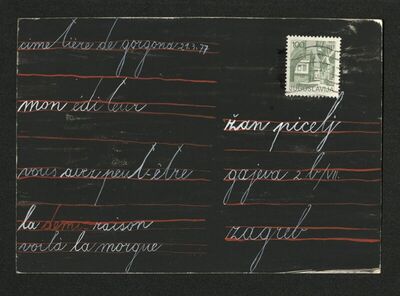 cimetière de gorgona 21.3.77
mon éditeur
vous avez peut-être
la demi-raison
voilà la morgue
JUGOSLAVIJA
žan picelj
gajeva 2b/VII.
zagreb